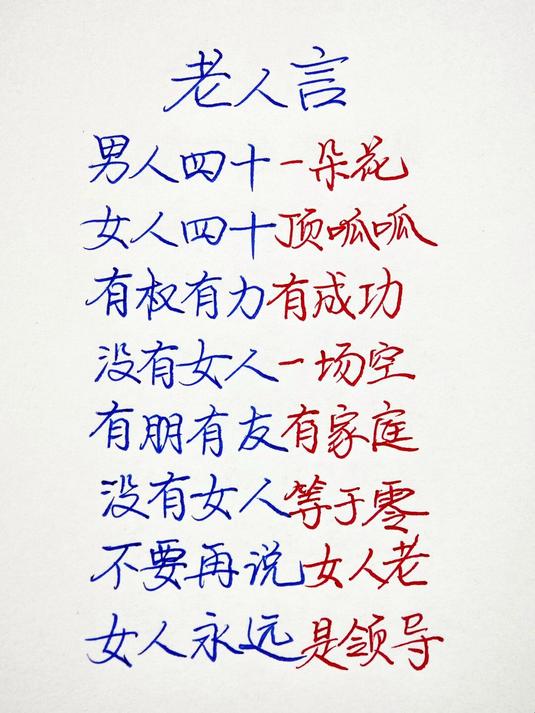 老人言
男人四十一朵花
女人四十顶呱呱
有权有力有成功
没有女人一场空
有朋有友有家庭
没有女人等于零
不要再说女人老
女人永远是领导